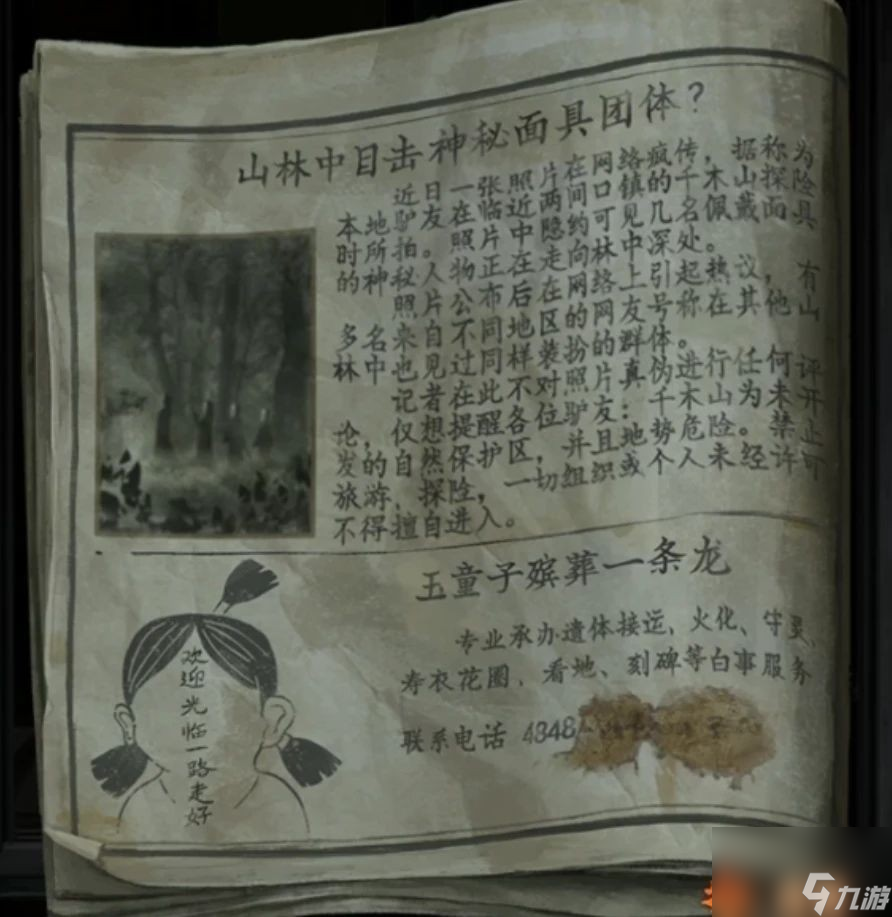 山林中目击神秘面具团体？
近日一张照片在网络疯传，据称为
本地驴友在临近两间口镇的千木山探险
时所拍。照片中隐约可见几名佩戴面具
的神秘人物正在走向林中深处。
照片公布后在网络上引起热议，有
多名来自不同地区的网友号称在其他山
林中也见过同样装扮的群体。
记者在此不对照片真伪进行任何评
论，仅想提醒各位驴友：千木山为未开
发的自然保护区，并且地势危险。禁止
旅游、探险，一切组织或个人未经许可
不得擅自进入。
玉童子殡葬一条龙
专业承办遗体接运、火化、守灵、
寿衣花圈、看地、刻碑等白事服务
联系电话 4848
欢迎光临一路走好
九游